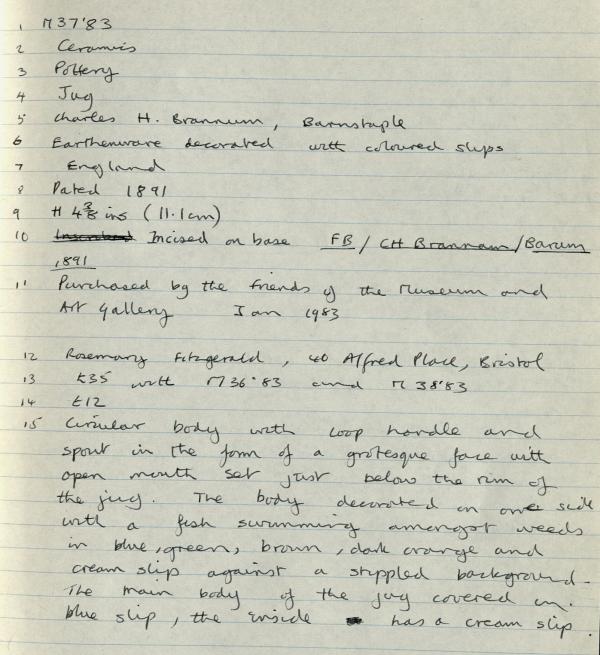 1 M37'83
2 Ceramics
3 Pottery
4 Jug
5 Charles H. Brannum, Barnstaple
6 Earthenware decorated with coloured slips
7 England
8 Dated 1891
9 H 4 3/8 ins (11.1cm)
10 Inscribed Incised on base FB / CH Brannam / Barum
1891
11 Purchased by the Friends of the Museum and
Art Gallery Jan 1983
12 Rosemary Fitzgerald, 40 Alfred Place, Bristol
13 £35 with M36'83 and M38'83
14 £12
15 Circular body with loop handle and
spout in the form of a grotesque face with
open mouth set just below the rim of
the jug. The body decorated on one side
with a fish swimming amongst weeds
in blue, green, brown, dark orange and
cream slip against a stippled background.
The main body of the jug covered in
blue slip, the inside has a cream slip.